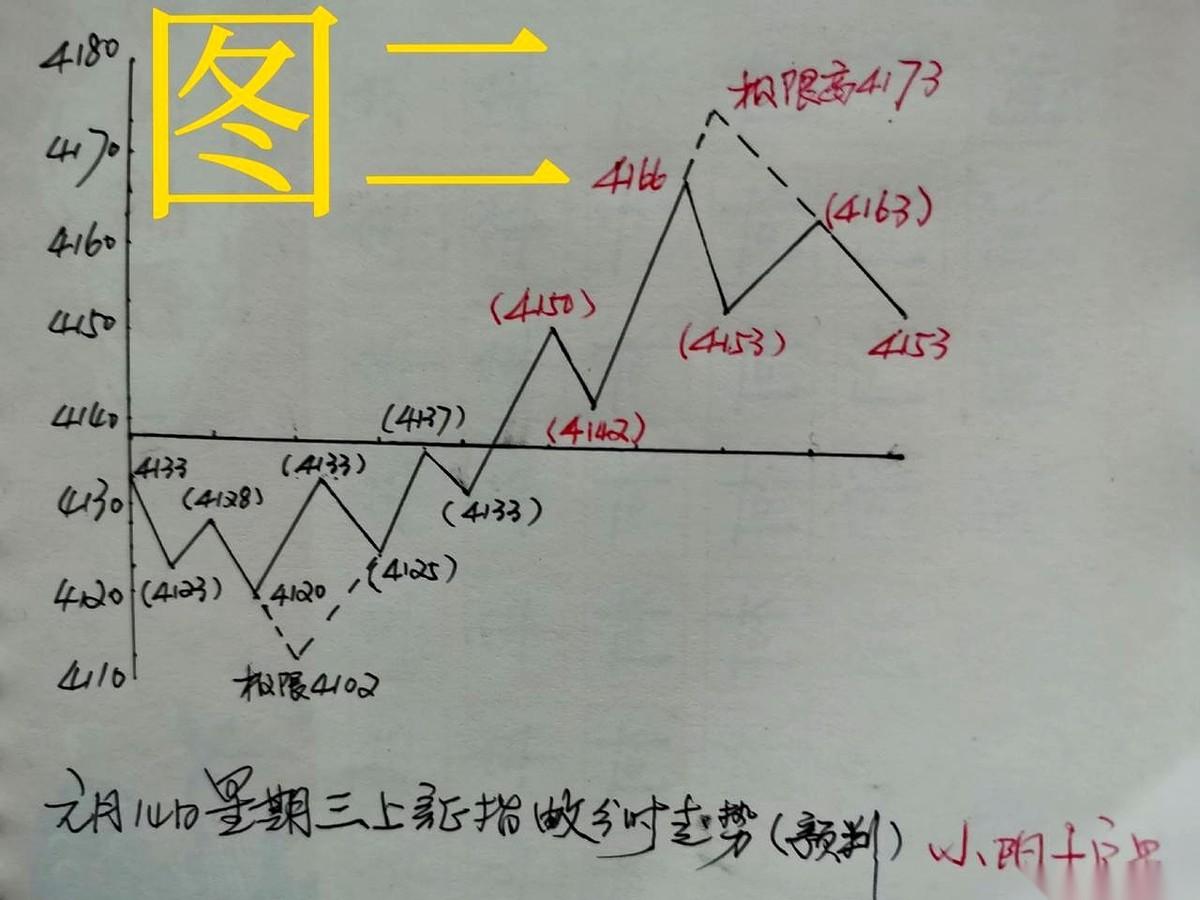 图二
4180
极限高4173
4170
4166
(4163)
4160
(4150)
4150
(4153)
4153
4140
(4137)
(4142)
4133
(4133)
(4128)
4130
(4133)
(4123)
4120
4120
(4125)
4110
极限4102
元月14日星期三上证指数分时走势(预判)
小阴十